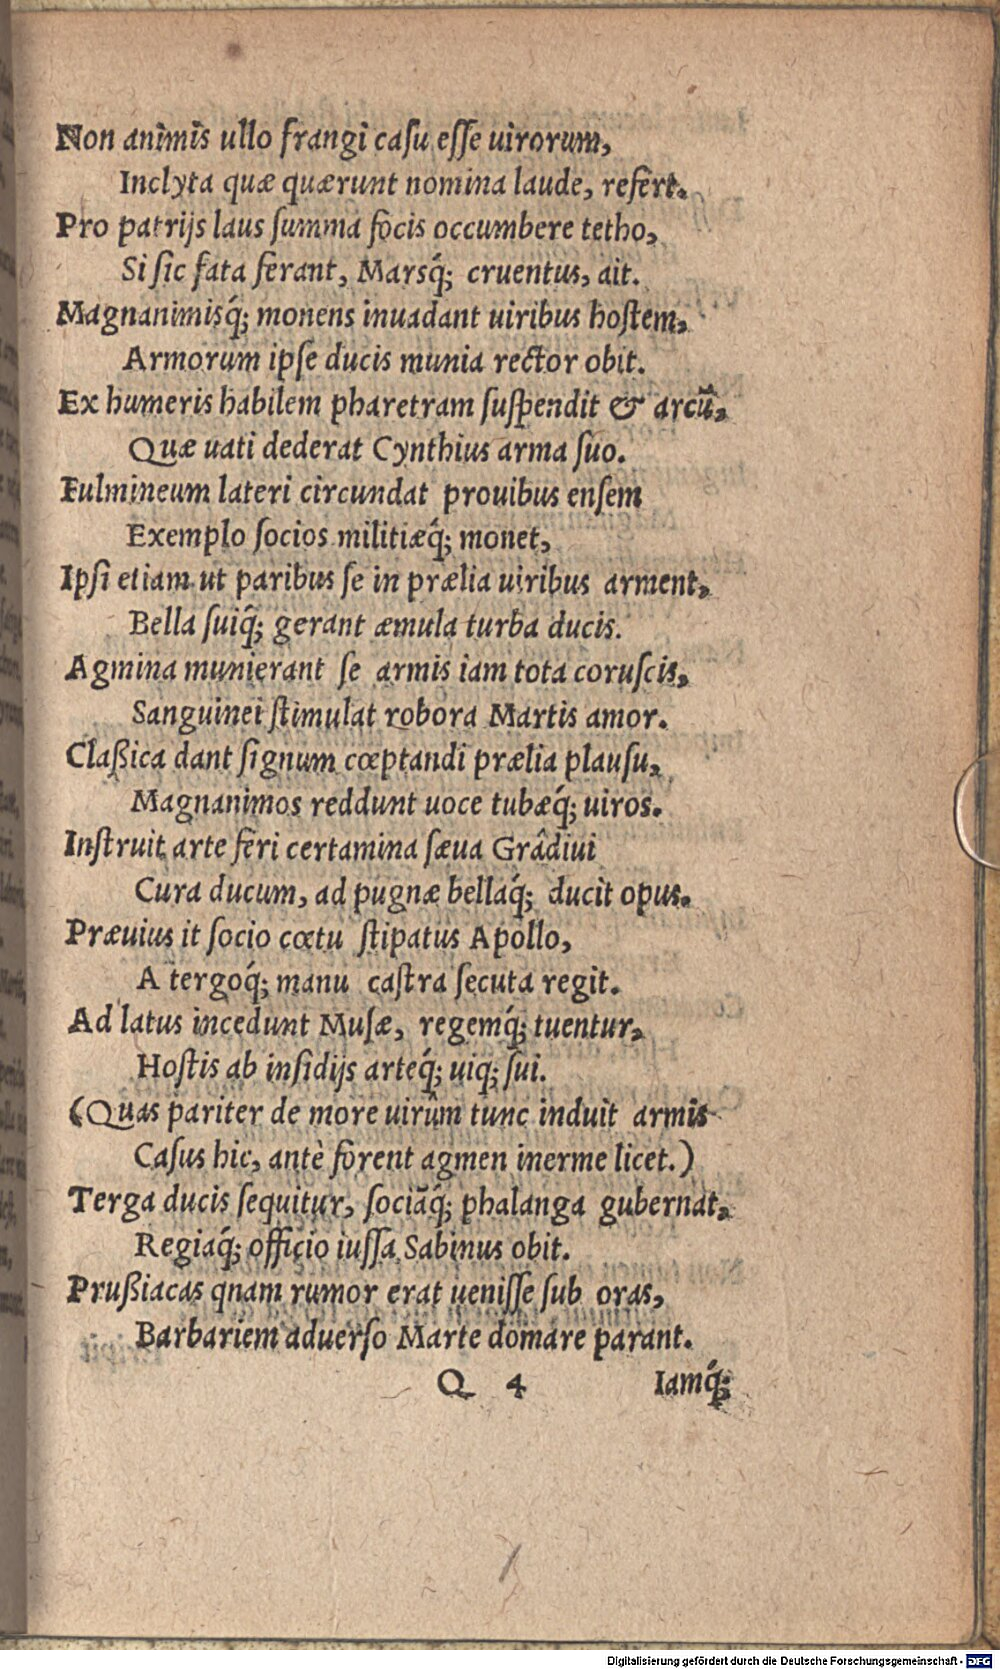 Non animis ullo frangi caſu eſſe uirorum,
Inclyta quæ quærunt nomina laude, refert.
Pro patrijs laus ſumma focis occumbere tetho,
Si ſic fata ferant, Marsq́; cruentus, ait.
Magnanimisq́; monens inuadant uiribus hoſtem,
Armorum ipſe ducis munia rector obit.
Ex humeris habilem pharetram ſuſpendit & arcū,
Quæ uati dederat Cynthius arma ſuo.
Fulmineum lateri circundat prouibus enſem
Exemplo ſocios militiæq́; monet,
Ipſi etiam ut paribus ſe in prælia uiribus arment,
Bella ſuiq́; gerant æmula turba ducis.
Agmina munierant ſe armis iam tota coruſcis,
Sanguinei ſtimulat robora Martis amor.
Claßica dant ſignum cœptandi prælia plauſu,
Magnanimos reddunt uoce tubæq́; uiros.
Inſtruit arte feri certamina ſæua Grâdiui
Cura ducum, ad pugnæ bellaq́; ducit opus.
Præuius it ſocio cœtu ſtipatus Apollo,
A tergoq́; manu caſtra ſecuta regit.
Ad latus incedunt Muſæ, regemq́; tuentur,
Hoſtis ab inſidijs arteq́; uiq; ſui.
(Quas pariter de more uirûm tunc induit armis
Caſus hic, antè forent agmen inerme licet.)
Terga ducis ſequitur, ſociāq́; phalanga gubernat,
Regiaq́; officio iuſſa Sabinus obit.
Prußiacas qnam rumor erat ueniſſe ſub oras,
Barbariem aduerſo Marte domare parant.
Q 4 Iamq́;
Digitalisierung gefördert durch die Deutsche Forschungsgemeinschaft - DFG